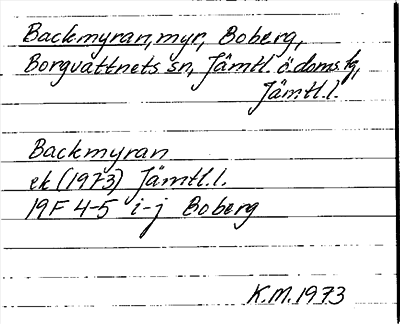 Backmyran, myr, Boberg,
Borgvattnets sn, Jämtl. ö. doms. tg,
Jämtl.l.
Backmyran
ek (1973) Jämtl.l.
19F 4-5 i-j Boberg
K.M. 1973